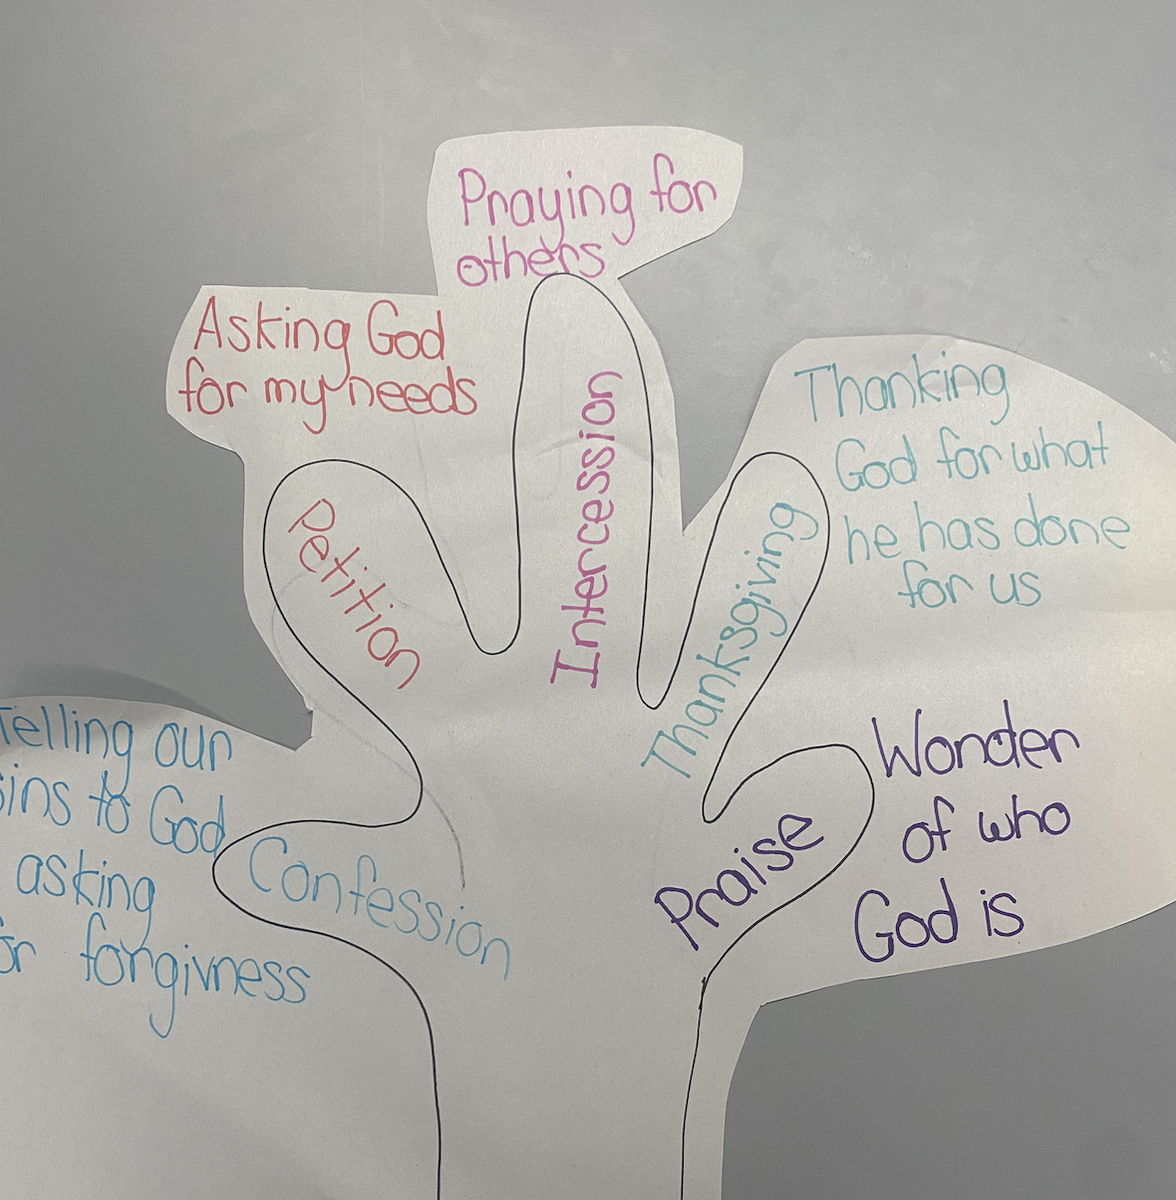 Praying for
others
Asking God
for my needs
Thanking
God for what
he has done
for us
Petition
Intercession
Thanksgiving
Telling our
sins to God
asking
for forgivness
Confession
Praise
Wonder
of who
God is